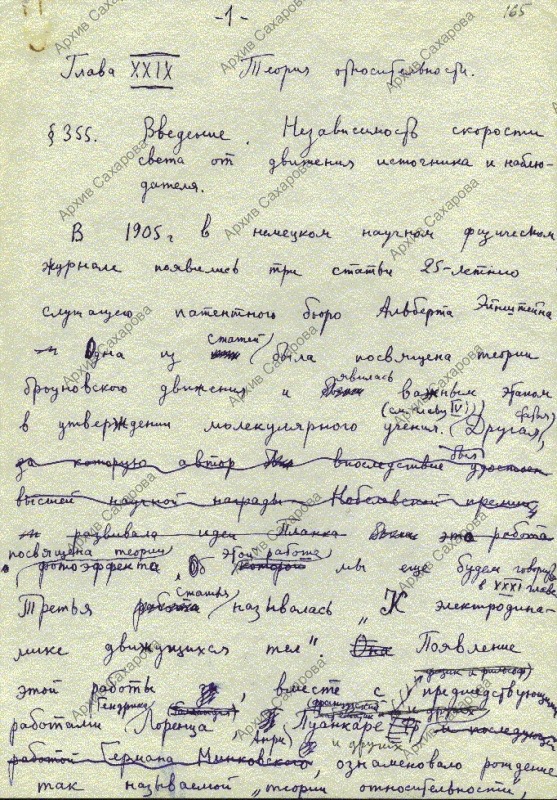 -1-
165
Глава XXIX Теория относительности.
§ 355. Введение. Независимость скорости
света от движения источника и наблю-
дателя.
В 1905 г в немецком научном физическом
журнале появились три статьи 25-летнего
служащего патентного бюро Альберта Эйнштейна
Одна из статей была посвящена теории
броуновского движения и явилась важным этапом
в утверждении молекулярного учения. (см. главу IV) Другая,
за которую автор был впоследствие удостоен
высшей научной награды Нобелевской премии,
развивала идеи Планка эта работа
посвящена теории
фотоэффекта, Об этой работе которой мы еще будем говорить
в XXXI главе
Третья работа статья называлась „К электродина-
мике движущихся тел". Она Появление
этой работы, вместе с предшествующими
работами Гендрика Лоренца Пуанкаре Анри и других и последующей
работой Германа Минковского, и других ознаменовало рождение
так называемой „теории относительности,
Архив Сахарова
Архив Сахарова
Архив Сахарова
Архив Сахарова
Архив Сахарова
Архив Сахарова
Архив Сахарова
Архив Сахарова
Архив Сахарова
Архив Сахарова
Архив Сахарова
Архив Сахарова